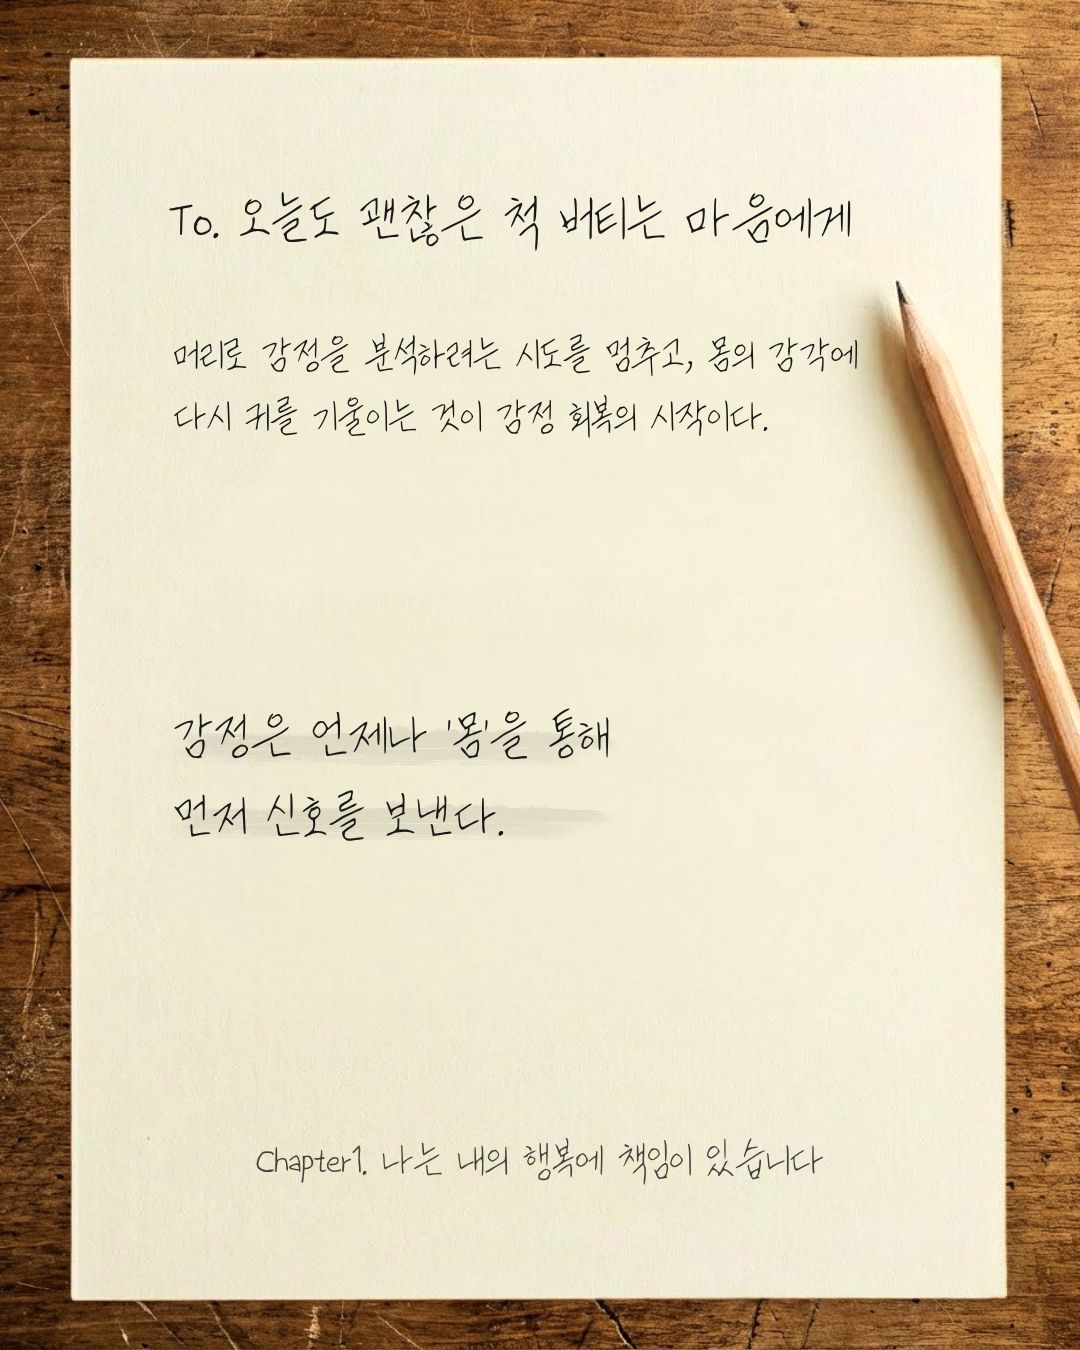 To. 오늘도 괜찮은 척 버티는 마음에게
머리로 감정을 분석하려는 시도를 멈추고, 몸의 감각에
다시 귀를 기울이는 것이 감정 회복의 시작이다.
감정은 언제나 '몸'을 통해
먼저 신호를 보낸다.
Chapter1. 나는 내의 행복에 책임이 있습니다